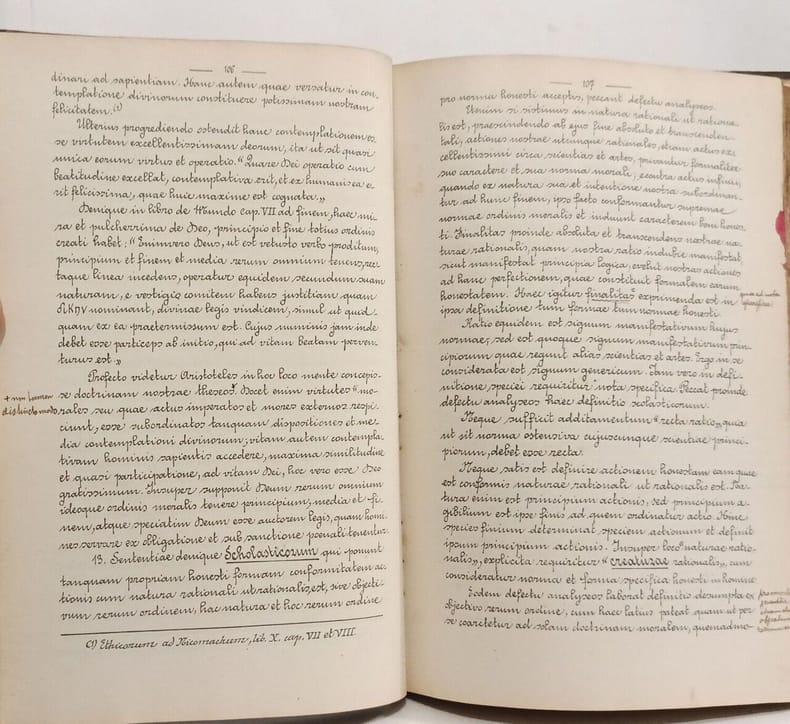 — 106 —
dinari ad sapientiam. Hanc autem quae versatur in con-
templatione divinorum constituere potissimam nostram
felicitatem.(1)
Ulterius progrediendo ostendit hanc contemplationem es-
se virtutem excellentissimam deorum, ita ut sit quasi
unica eorum virtus et operatio. "Quare Dei operatio cum
beatitudine excellat, contemplativa erit, et ex humanis ea e-
rit felicissima, quae huic maxime est cognata.„
Denique in libro de Mundo cap. VII ad finem, haec mi-
ra et pulcherrima de Deo, principio et fine totius ordinis
creati habet: "Enimvero Deus, ut est vetusto verbo proditum,
principium et finem et media rerum omnium tenens, rec-
taque linea incedens, operatur equidem secundum suam
naturam, e vestigio comitem habens justitiam quam
nominant, divinae legis vindicem, simul ut quid-
quam ex ea praetermissum est. Cujus numinis jam inde
debet esse particeps ab initio, qui ad vitam beatam perven-
turus est.„
Profecto videtur Aristoteles in hoc loco mente concepis-
se doctrinam nostrae theseos. Docet enim virtutes "mo-
+ non tamen
distincto modo
rales seu quae actus imperatos et mores externos respi-
ciunt, esse subordinatos tanquam dispositiones et me-
dia contemplationi divinorum; vitam autem contempla-
tivam hominis sapientis accedere, maxima similitudine
et quasi participatione, ad vitam Dei, hoc vero esse Deo
gratissimum. Insuper supponit Deum rerum omnium
ideoque ordinis moralis tenere principium, media et fi-
nem, atque speciatim Deum esse auctorem legis, quam homi-
nes servare ex obligatione et sub sanctione poenali tenentur.
13. Sententiae denique Scholasticorum qui ponunt
tanquam propriam honesti formam conformitatem ac-
tionis cum natura rationali ut rationalis est, sive objecti-
vum rerum ordinem, hac natura et hoc rerum ordine
(1) Ethicorum ad Nicomachum, lib. X. cap. VII et VIII.
— 107 —
pro norma honesti acceptis, peccant defectu analyseos.
Utenim si sistimus in natura rationali ut rationa-
lis est, praescindendo ab ejus fine absoluto et transcenden-
tali, actiones nostrae utcumque rationales, etiam actus ex-
cellentissimi circa scientias et artes, privantur formaliter
suo caractere et sua norma morali, econtra actus infimi,
quando ex natura sua et intentione nostra subordinan-
tur ad hunc finem, ipso facto conformantur supremae
normae ordinis moralis et induunt caracterem boni hones-
ti. Finalitas proinde absoluta et transcendens nostrae na-
turae rationalis, quam nostra ratio indubie manifestat,
sicut manifestat principia logica, evehit nostras actiones
ad hanc perfectionem, quae constituit formalem earum
honestatem. Haec igitur finalitas exprimenda est in
ipsa definitione tum formae tum normae honesti.
Ratio equidem est signum manifestativum hujus
normae; sed est quoque signum manifestativum prin-
cipiorum quae regunt alias scientias et artes. Ergo in se
considerata est signum genericum. Jam vero in defi-
nitione speciei requiritur nota specifica. Peccat proinde
defectu analyseos haec definitio scolasticorum.
Neque sufficit additamentum "recta ratio„, quia
ut sit norma ostensiva cujuscumque scientiae princi-
piorum, debet esse recta.
Neque satis est definire actionem honestam eam quae
est conformis naturae rationali ut rationalis est. Na-
tura enim est principium actionis, sed principium a-
gibilium est ipse finis ad quem ordinatur actio. Hinc
species finium determinat speciem actionum et definit
ipsum principium actionis. Insuper loco "naturae ratio-
nalis„, explicita requiritur "creaturae rationalis„, cum
consideratur norma et forma specifica honesti in homine.
Eodem defectu analyseos laborat definitio desumpta ex
objectivo rerum ordine, cum haec latius pateat quam ut per
se coarctetur ad solam doctrinam moralem, quemadmo-